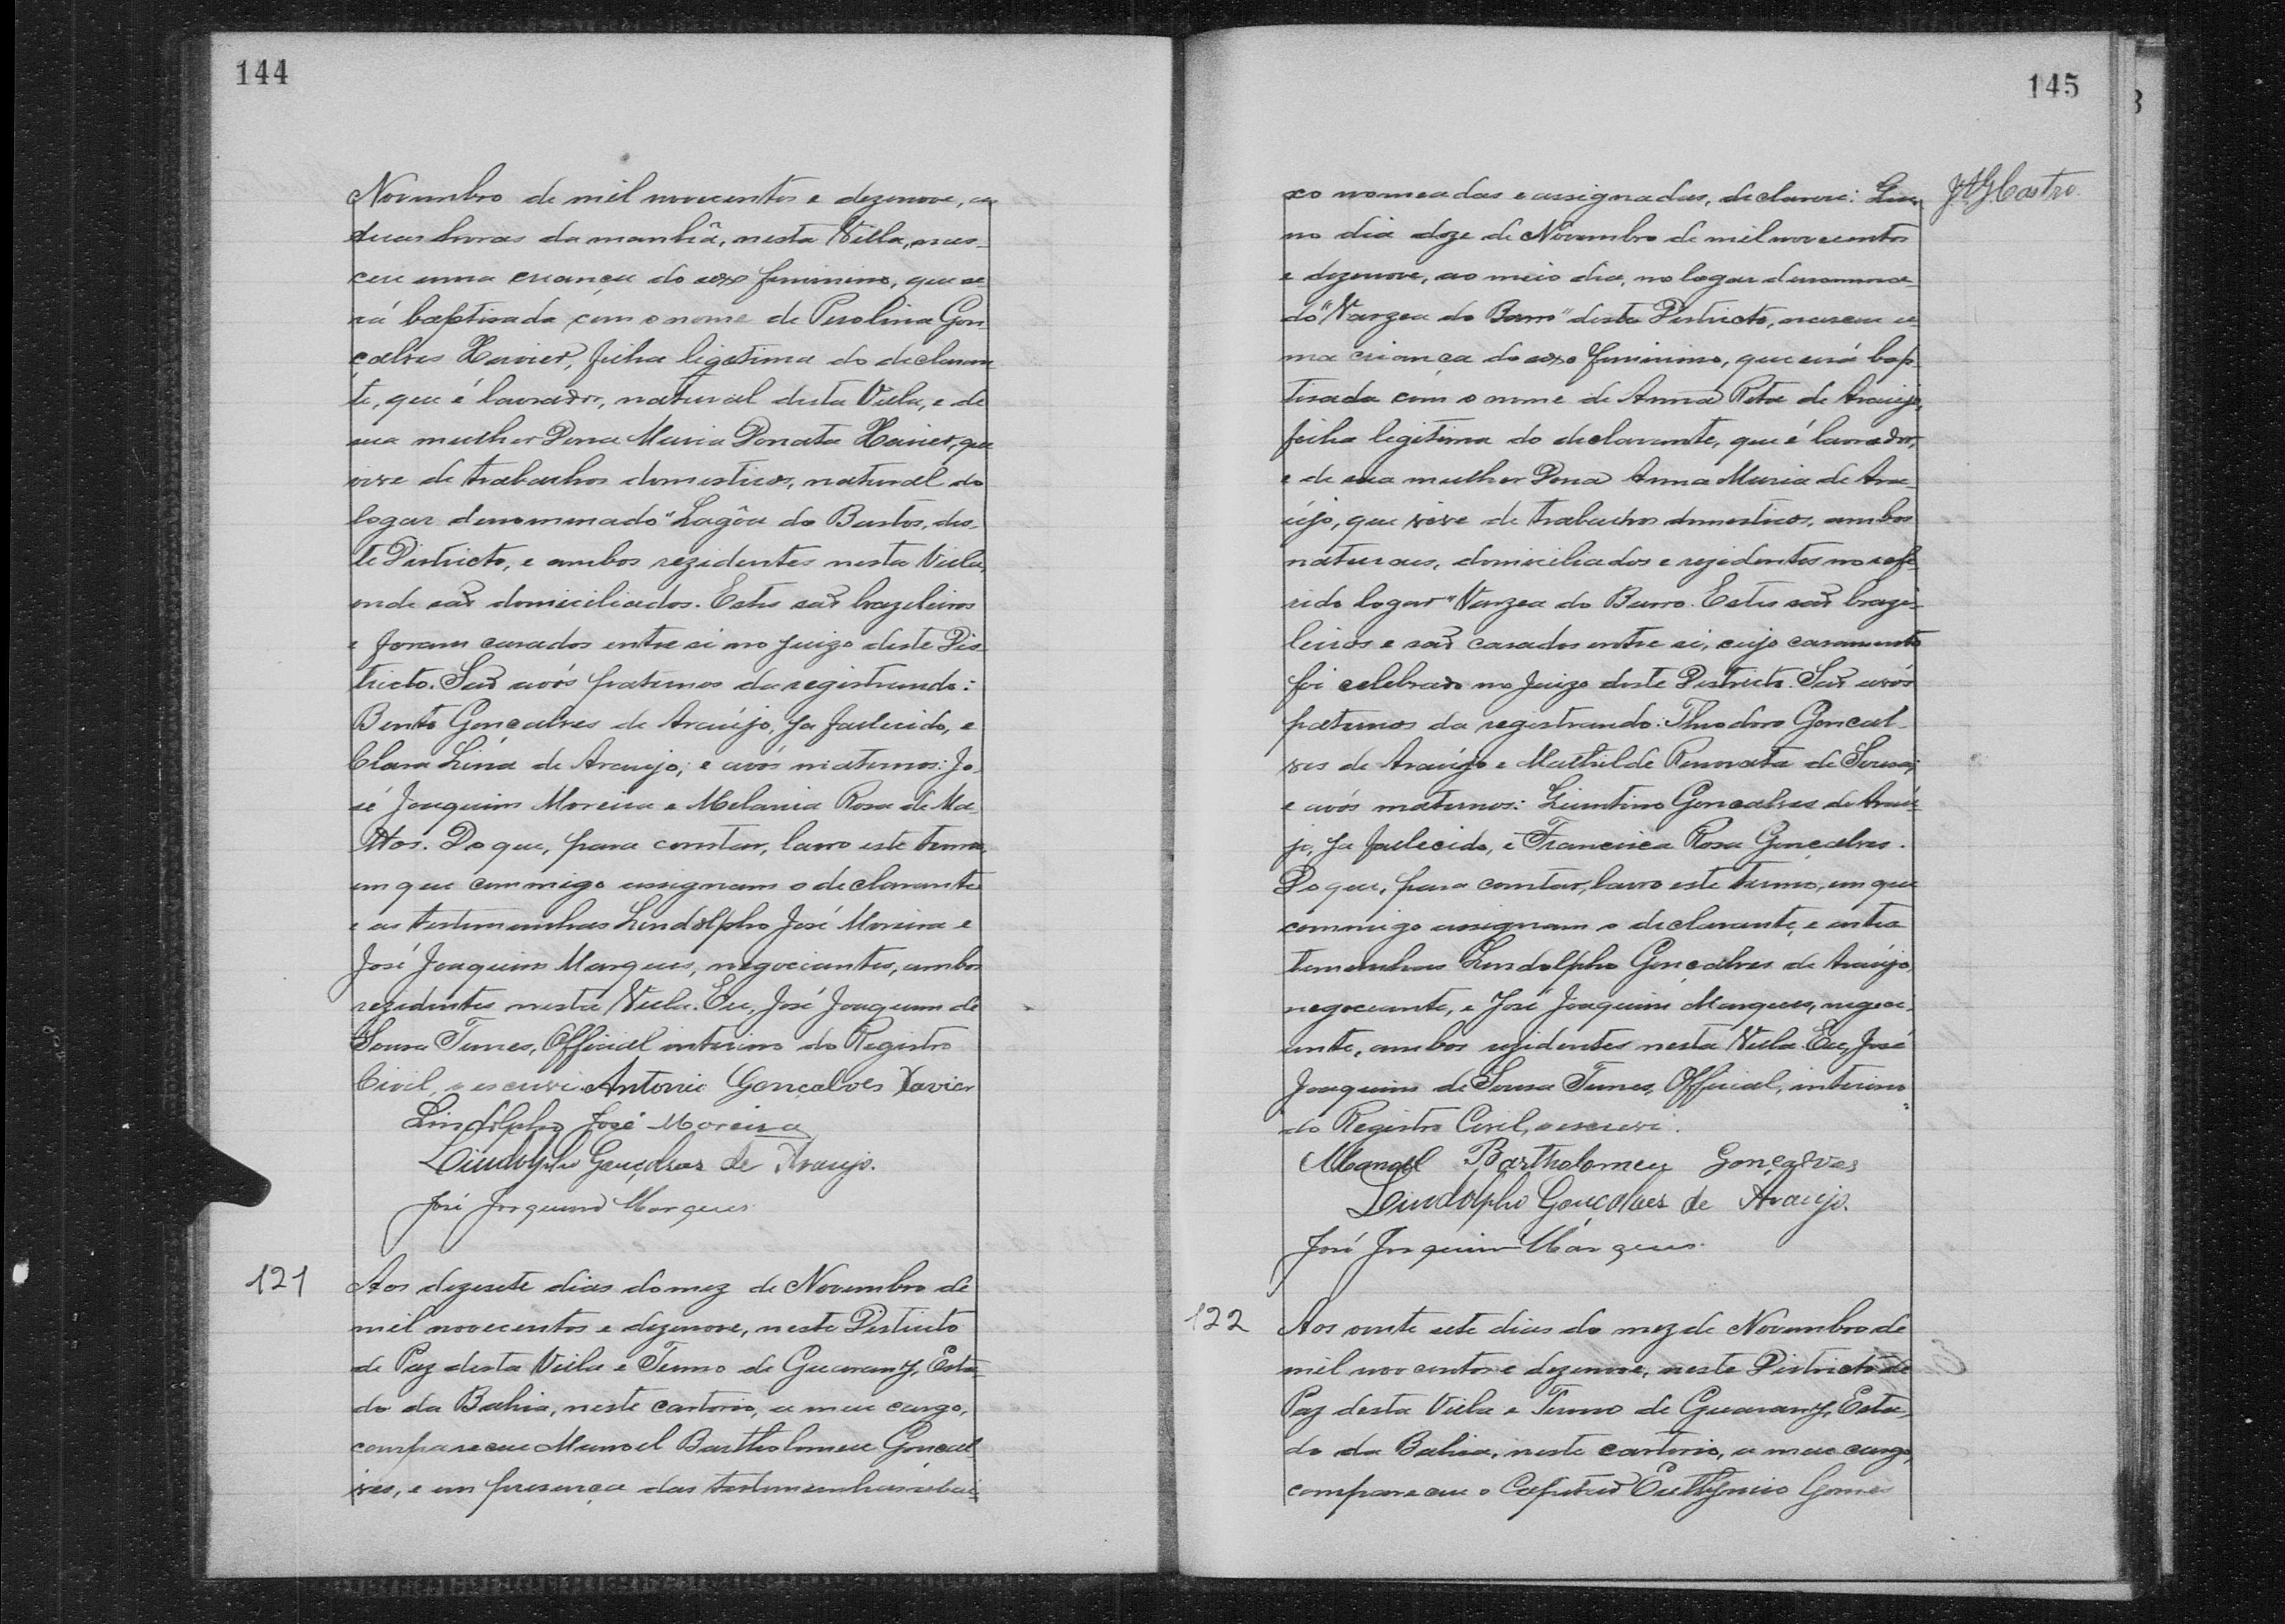 144
Novembro de mil novecentos e dezenove, as
duas horas da manhã, nesta Villa, nas-
ceu uma criança do sexo feminino, que se-
rá baptisada com o nome de Perolina Gon
çalves Xavier, filha legitima do declaran
te, que é lavrador, natural desta Villa, e de
sua mulher Dona Maria Donata Xavier, que
vive de trabalhos domesticos, natural do
logar denominado "Lagôa do Bastos, des-
te Districto, e ambos rezidentes nesta Villa,
onde são domiciliados. Estes são brazileiros
e foram casados entre si no juizo deste Dis-
tricto. São avós paternos da registrando:
Bento Gonçalves de Araújo, ja fallecido, e
Clara Lina de Araujo; e avós maternos: Jo-
sé Joaquim Moreira e Melania Rosa de Ma-
ttos. Do que, para constar, lavro este termo,
em que commigo assignam o declarante
e as testemunhas Lindolpho José Moreira e
José Joaquim Marques, negociantes, ambos
rezidentes nesta Villa. Eu, José Joaquim de
Sousa Tunes, Official interino do Registro
Civil, o escrevi. Antonio Gonçalves Xavier
Lindolpho José Moreira
Lindolpho Gonçalves de Araujo.
José Joaquim Marques
121
Aos dezesete dias do mez de Novembro de
mil novecentos e dezenove, neste Districto
de Paz desta Villa e Termo de Guarany, Esta-
do da Bahia, neste cartorio, a meu cargo,
compareceu Manoel Bartholomeu Gonçal-
ves, e em presença das testemunhas abai-
145
xo nomeadas e assignadas, declarou: Que, J.A.G. Castro.
no dia doze de Novembro de mil novecentos
e dezenove, ao meio dia, no logar denomina-
do "Varzea do Barro" deste Districto, nasceu u-
ma criança do sexo feminino, que será bap-
tisada com o nome de Anna Rita de Araujo,
filha legitima do declarante, que é lavrador,
e de sua mulher Dona Anna Maria de Ara-
újo, que vive de trabalhos domesticos, ambos
naturaes, domiciliados e rezidentes no refe-
rido logar "Varzea do Barro. Estes são brazi-
leiros e são casados entre si, cujo casamento
foi celebrado no Juizo deste Districto. São avós
paternos da registrando: Theodoro Gonçal-
ves de Araújo e Mathilde Renovata de Sousa;
e avós maternos: Liuntino Gonçalves de Araú-
jo, ja fallecido, e Francisca Rosa Gonçalves.
Do que, para constar, lavro este termo, em que
commigo assignam o declarante, e as tes-
temunhas Lindolpho Gonçalves de Araújo,
negociante, e José Joaquim Marques, negoci-
ante, ambos rezidentes nesta Villa. Eu, José
Joaquim de Sousa Tunes, Official, interino
do Registro Civil, o escrevi.
Manoel Bartholomeu Gonçalves
Lindolpho Gonçalves de Araujo.
José Joaquim Marques.
122
Aos vinte sete dias do mez de Novembro de
mil novecentos e dezenove, neste Districto de
Paz desta Villa e Termo de Guarany, Esta-
do da Bahia, neste cartorio, a meu cargo,
compareceu o Capitão Euthymio Gomes